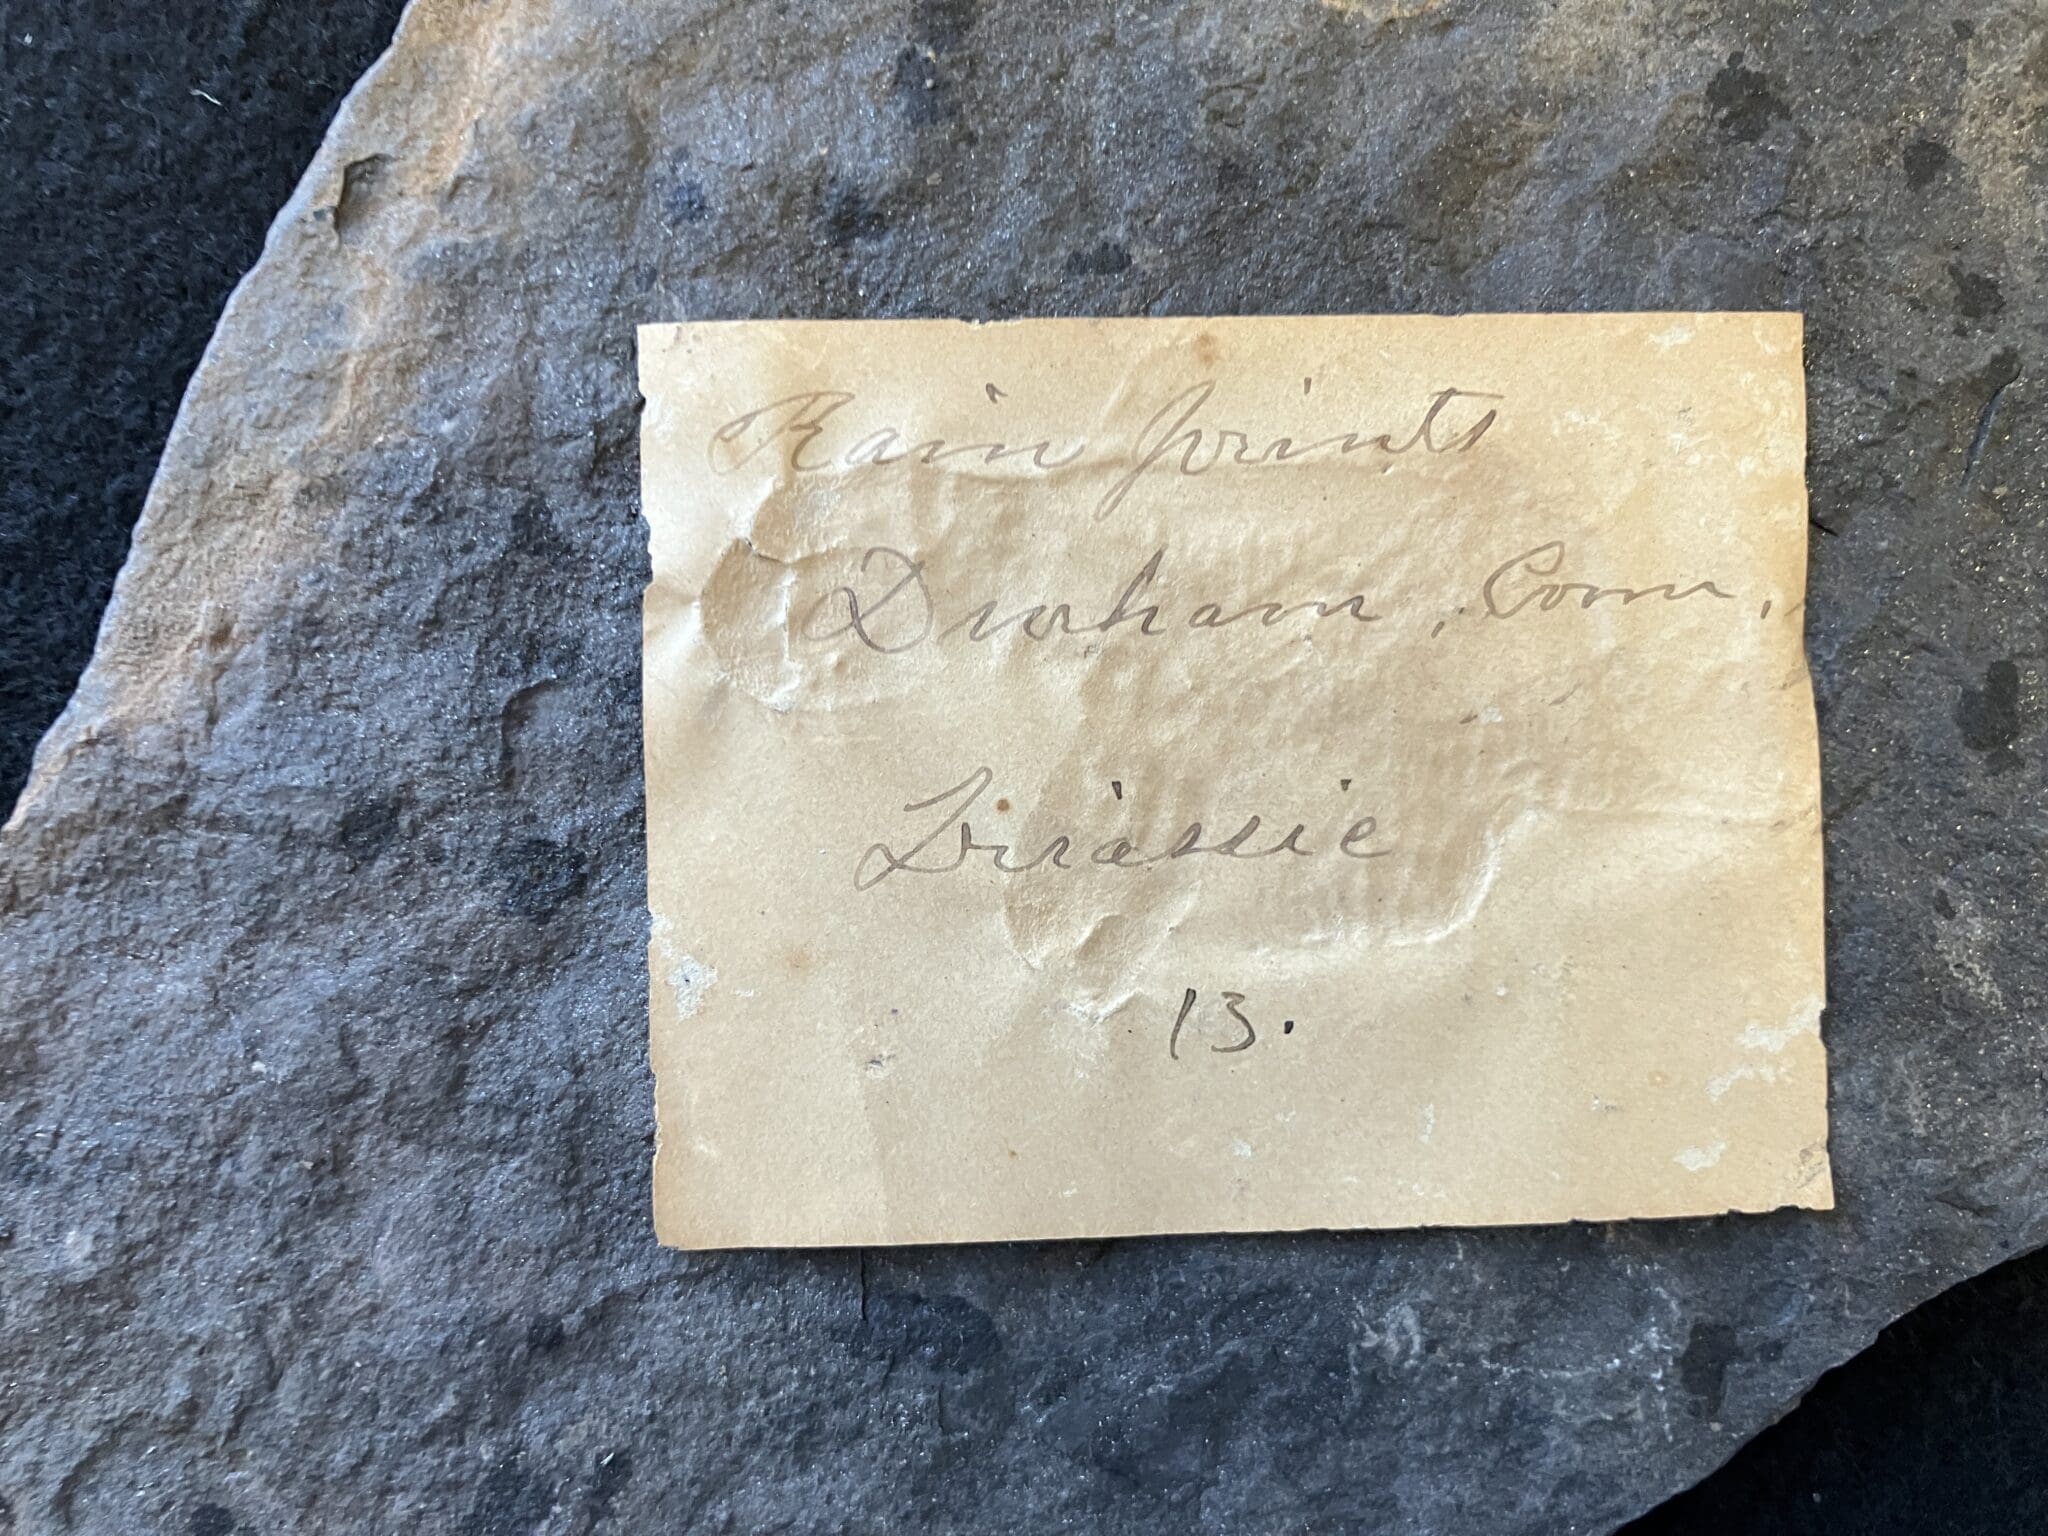 Rain prints
Durham, Conn.,
Triassic
13.